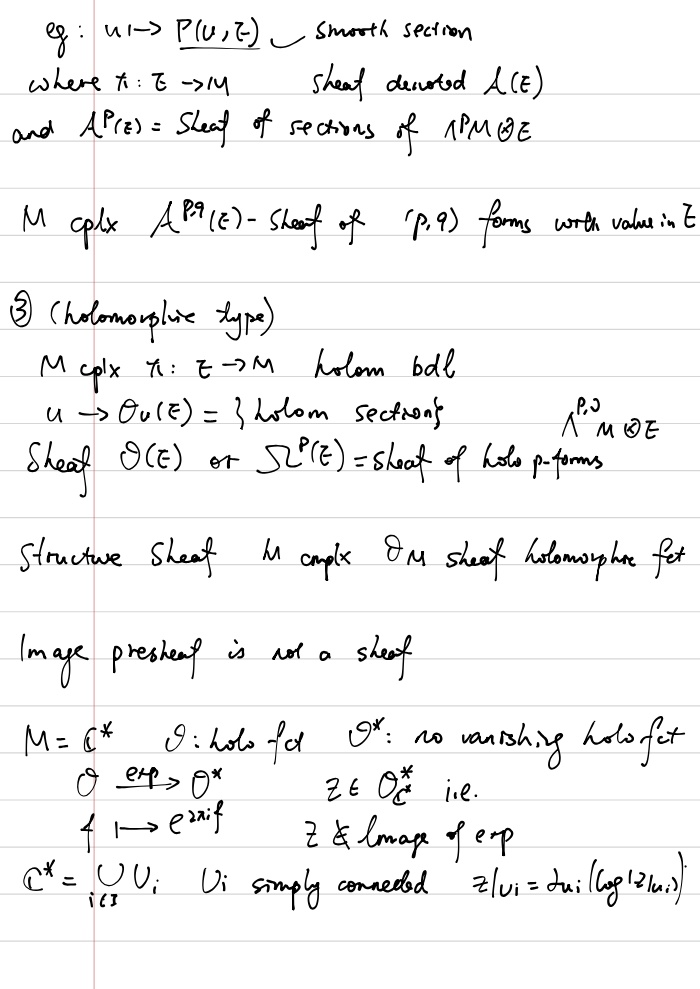 eg: u ↦ Γ(u, E) smooth section
where π: E → M sheaf denoted A(E)
and A^p(E) = Sheaf of sections of Λ^pM ⊗ E
M cplx A^{p,q}(E) - sheaf of (p,q) forms with value in E
③ (holomorphic type)
M cplx π: E → M holom bdl
u → O_u(E) = {holom section}
Λ^{p,0} M ⊗ E
Sheaf O(E) or Ω^p(E) = sheaf of holo p-forms
Structure Sheaf M cmplx O_M sheaf holomorphic fct
Image presheaf is not a sheaf
M = C* O: holo fct O*: no vanishing holo fct
O —exp→ O* z ∈ O*_{C*} i.e.
f ↦ e^{2πif} z ∉ Image of exp
C* = ∪_{i∈I} U_i U_i simply connected z|_{U_i} =